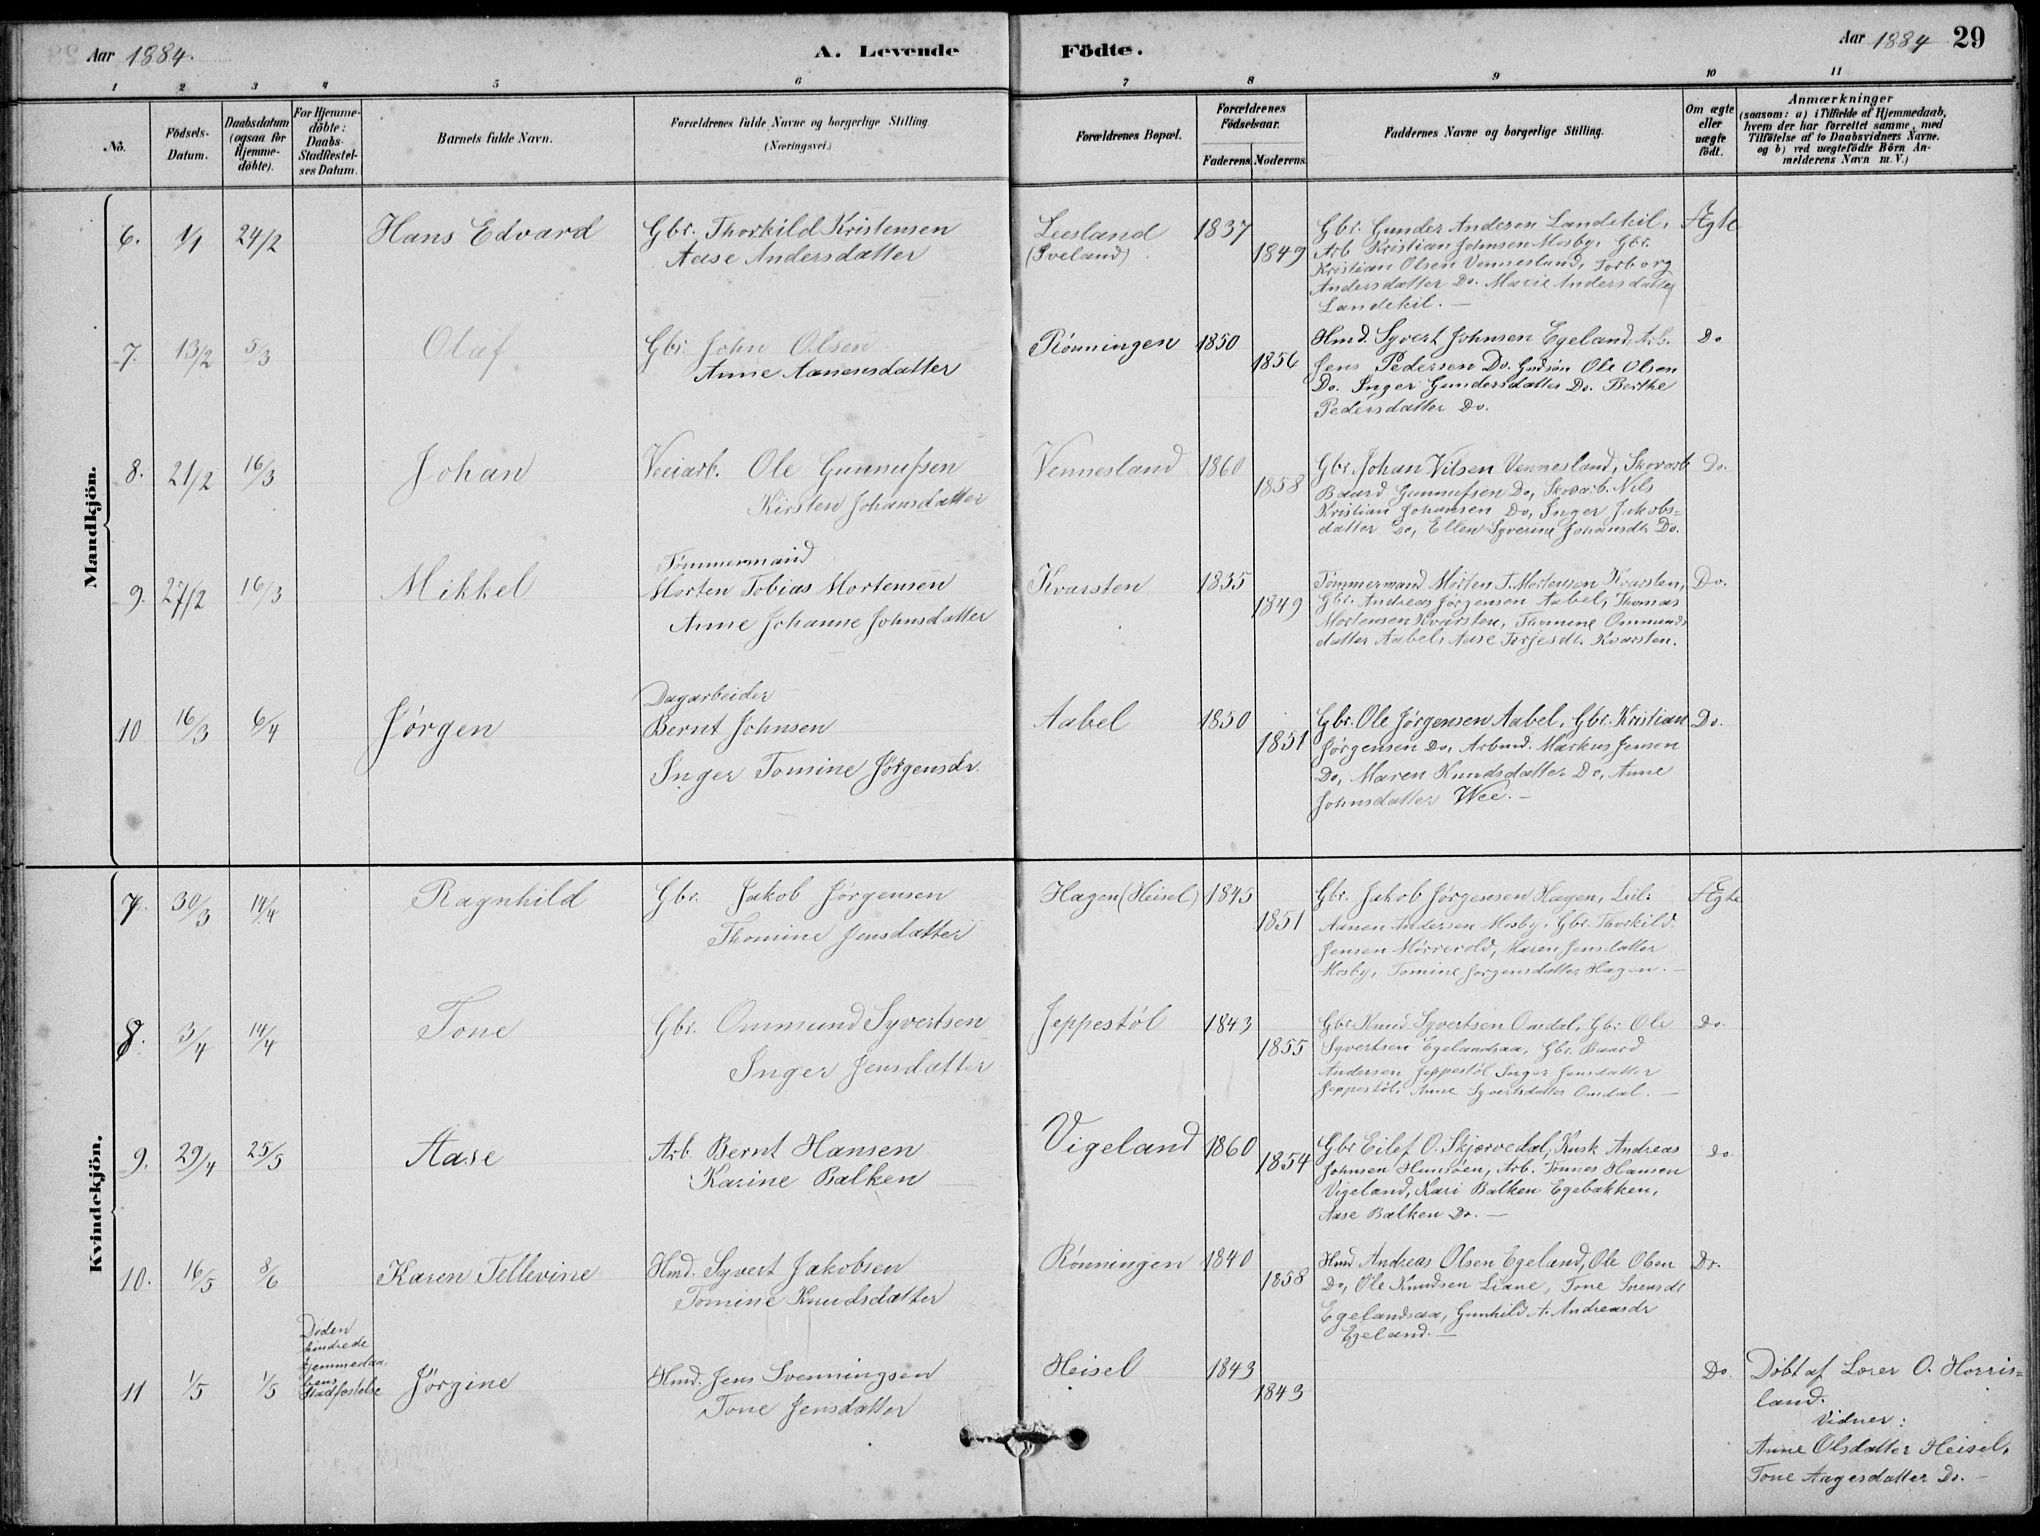 Aar 1884.
A. Levende Födte.
Aar 1884 29
1 2 3 4 5 6 7 8 9 10 11
No.
Födsels-Datum.
Daabsdatum (ogsaa for Hjemme-döbte).
For Hjemme-döbte: Daabs-Stadfæstel-ses Datum.
Barnets fulde Navn.
Forældrenes fulde Navne og borgerlige Stilling (Næringsvei.)
Forældrenes Bopæl.
Forældrenes Födselsaar.
Faderens. Moderens.
Faddernes Navne og borgerlige Stilling.
Om ægte eller uægte födt.
Anmærkninger
(saasom: a) i Tilfælde af Hjemmedaab,
hvem der har forrettet samme, med
Tilföielse af to Daabsvidners Navne.
og b) ved uægtefödte Börn An-
melderens Navn m. V.)
Mandkjön.
6. 1/1 24/2 Hans Edvard
Gbr. Thorkild Kristensen
Aase Andersdatter
Leesland
(Iveland)
1837
1849
Gbr. Gunder Andesen Landekil,
Arb Kristian Johnsen Mosby, Gbr.
Kristian Olsen Vennesland, Torborg
Andersdatter Do. Marie Andersdatter
Landekil. —
Ægte
7. 13/2 5/3 Olaf
Gbr. John Olsen
Anne Aanensdatter
Rønningen
1850
1856
Hmd. Syvert Johnsen Egeland, Arb.
Jens Pedersen Do. Gudsøn Ole Olsen
Do. Inger Gundersdatter Do. Berthe
Pedersdatter Do.
Do
8. 21/2 16/3 Johan
Veiarb. Ole Gunnufsen
Kirsten Johansdatter
Vennesland
1860
1858
Gbr. Johan Vilsen Vennesland, Skovarb
Baard Gunnufsen Do, Skovarb. Nils
Kristian Johansen Do, Inger Jakobs=
datter Do, Ellen Syverine Johansdt. Do.
Do.
9. 27/2 16/3 Mikkel
Tømmermand
Morten Tobias Mortensen
Anne Johanne Johnsdatter
Kvarsten
1835
1849
Tømmermand Morten T. Mortensen Kvarsten,
Gbr. Andreas Jørgensen Aabel, Thomas
Mortensen Kvarsten, Thomine Ommunds
datter Aabel, Aase Torjesdt. Kvarsten.
Do.
10 16/3 6/4 Jørgen
Dagarbeider
Bernt Johnsen
Inger Tomine Jørgensdr.
Aabel
1850
1851
Gbr. Ole Jørgensen Aabel, Gbr. Kristian
Jørgensen Do, Arbmd. Markus Jensen
Do, Maren Knudsdatter Do, Anne
Johnsdatter Wee. —
Do.
Kvindekjön.
7. 30/3 14/4 Ragnhild
Gbr. Jakob Jørgensen
Thomine Jensdatter
Hagen (Heisel)
1845
1851
Gbr. Jakob Jørgensen Hagen, Leil:
Aanen Andersen Mosby, Gbr. Thorkild
Jensen Mørrevold, Maren Jensdatter
Mosby, Tomine Jørgensdatter Hagen. —
Ægte
8. 3/4 14/4 Tone
Gbr. Ommund Syvertsen
Inger Jensdatter
Jeppestøl
1843
1855
Gbr. Knud Syvertsen Omdal, Gbr. Ole
Syvertsen Egelandsaa, Gbr. Baard
Andersen Jeppestøl Inger Jensdatter
Jeppestøl, Anne Syvertsdatter Omdal. —
Do.
9. 29/4 25/5 Aase
Arb. Bernt Hansen
Karine Balken
Vigeland
1860
1854
Gbr Eilef O. Skjerredal, Kusk Andreas
Johnsen Hunsøen, Arb. Tønnes Hansen
Vigeland, Kari Balken Egebakken,
Aase Balken Do. —
Do
10. 16/5 8/6 Karen Tellevine
Hmd. Syvert Jakobsen
Tomine Knudsdatter
Rønningen
1840
1858
Hmd Andreas Olsen Egeland, Ole Olsen
Do, Ole Knudsen Liane, Tone Svensdt
Egelandsaa, Gunhild A. Andreasdr
Egeland. —
Do.
11 1/5 1/5
Døden
hindrede
hjemmedaa
bens
Stadfæstelse
Jörgine
Hmd. Jens Svenningsen
Tone Jensdatter
Heisel
1843
1843
Do.
Döbt af Lærer O. Horris=
land.
Vidner:
Anne Olsdatter Heisel,
Tone Aagesdatter Do. —